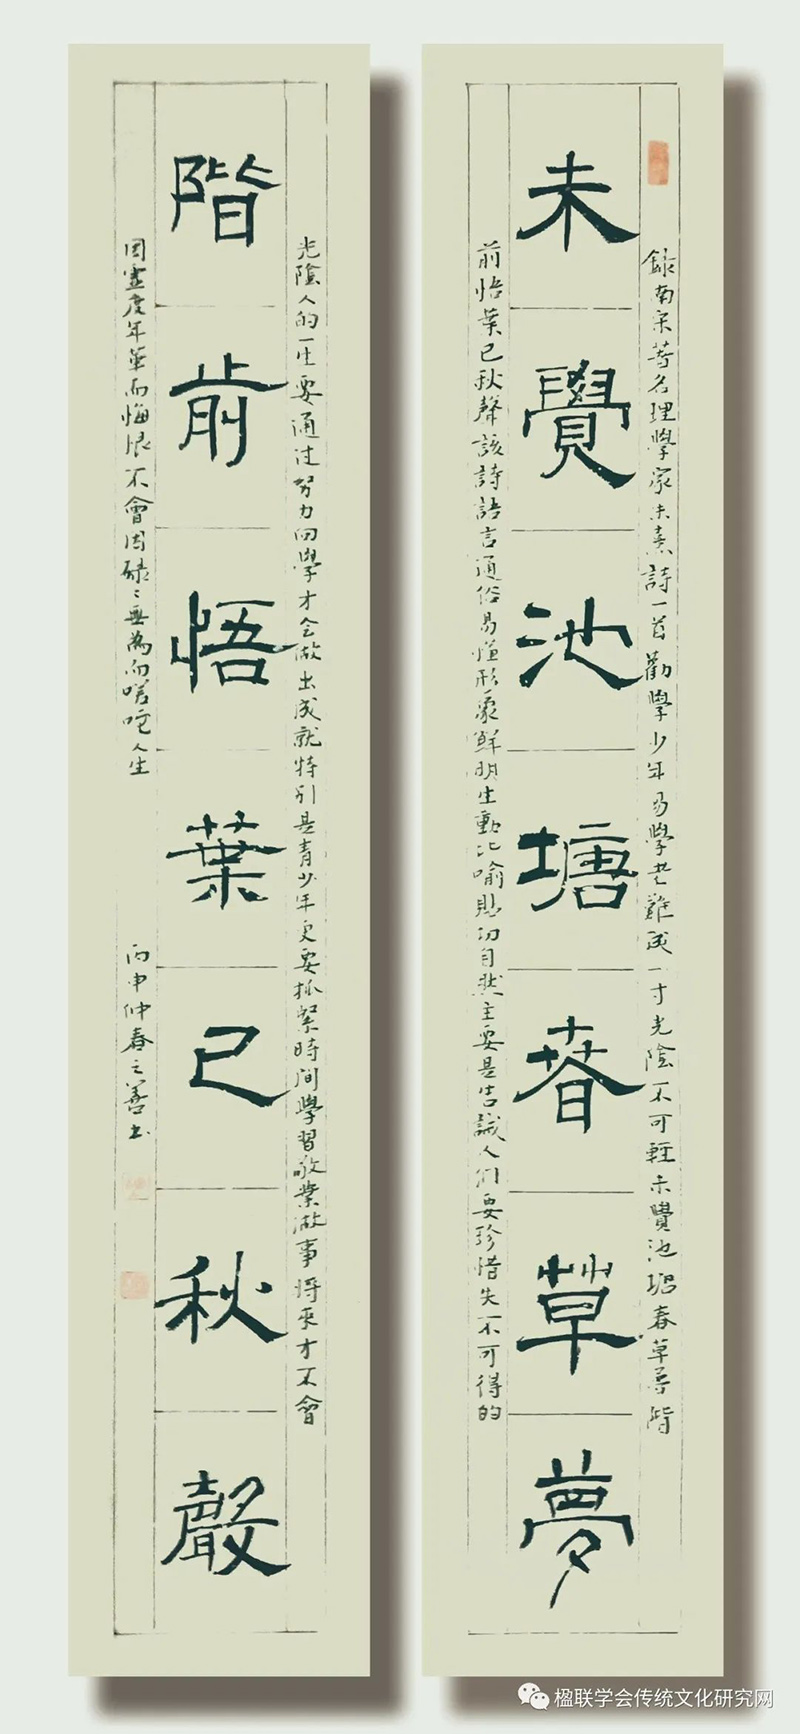 錄南宋著名理學家朱熹詩一首勸學少年易學老難成一寸光陰不可輕未覺池塘春草夢階
未覺池塘春草夢
前悟葉已秋聲該詩語言通俗易懂形象鮮明生動比喻貼切自然主要是告誡人們要珍惜失不可得的
光陰人的一生要通过努力向學才会做出成就特别是青少年更要抓緊時间學習敬業做事将來才不會
階前悟葉已秋聲
因虚度年華而悔恨不會因碌々無為而嗟咤人生
丙申仲春之善书
楹联学会传统文化研究网